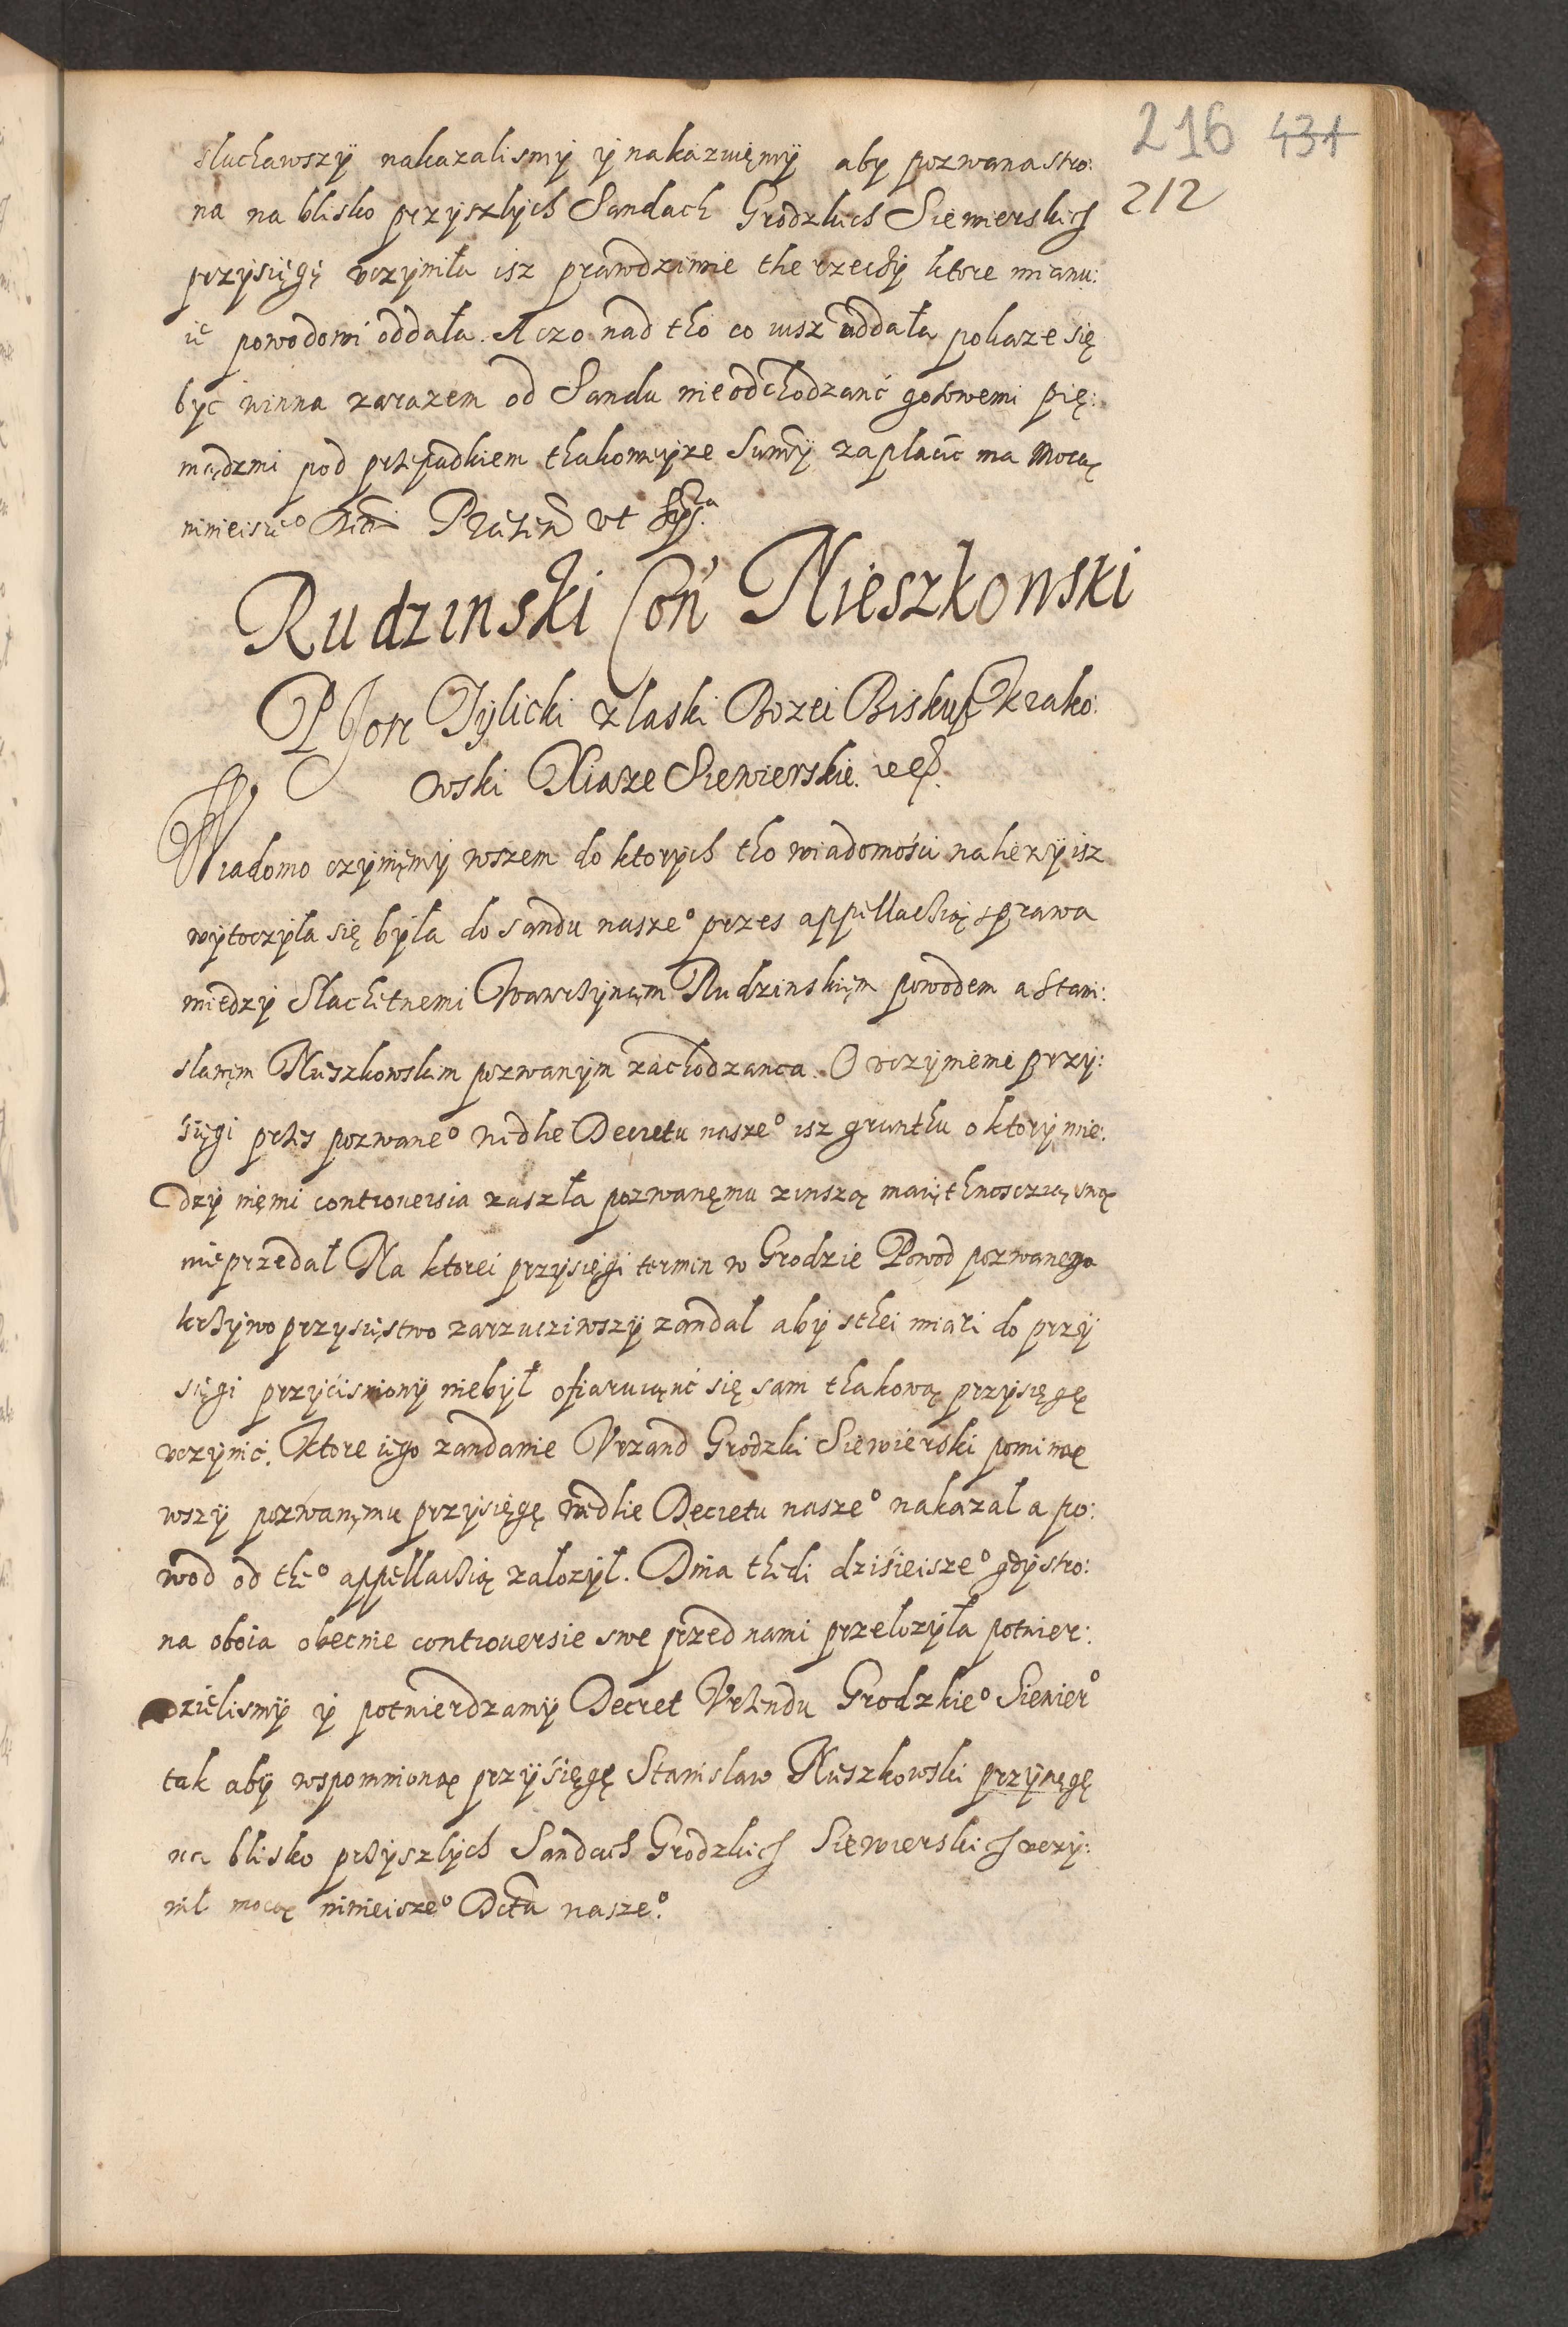 216 431
212
sluchawszÿ nakazalismÿ ÿ nakazuięmÿ aby pozwana stro:
na na blisko przyszlÿch Sandach Grodzkich Siewierskich
przÿsięgę vczÿniła isz prawdziwie the rzeczÿ ktore mianu:
ie powodowi oddała. A czo nad tho co iusz oddała pokaze się
bÿc winna zarazem od Sandu nieodchodzanć gotowemi pię:
niądzmi pod przepadkiem thakoweÿze Summÿ zaplacic ma Moczą
ninieisze° Presen vt Supra
Rudzinski Con Nieszkowski
PJotr Tÿlicki z laski Bozei Biskup Krako:
owski Xiaze Siewierskie.
Wiadomo czÿnięmÿ wszem do ktorÿch tho wiadomości nalezÿ isz
wÿtoczÿla się bÿla do sandu nasze° przes appellaczią sprawa
miedzÿ Slachetnemi Wawrzÿncem Rudzinskięm powodem a Stani:
slawęm Nieszkowskim pozwanÿm zachodzanca. O vczÿnienie przÿ:
sięgi przes pozwane° wedlie Decretu nasze° isz gruntħu o ktorÿ mie:
dzÿ niemi controuersia zaszła pozwanęmu z inszą maiętħnosczią swą
nie przedał Na ktorei przÿsięgi termin w Grodzie Powod pozwanego
krzÿwo przysięstwo zarzucziwszÿ zandal abÿ sthei miari do przÿ
sięgi przÿcisnionÿ niebÿł ofiaruiąnć się sam thakową przÿsięgę
vczÿnić. Ktore iego zandanie Vrzand Grodzki Siewierski pominą
wszÿ pozwanęmu przÿsięgę wedlie Decretu nasze° nakazal a po:
wod od the° appellaczią zalozÿł. Dnia thedi dzisieisze° gdÿ stro:
na oboia obecnie controuersie swe przed nami przelozÿła potwier:
dzielismÿ ÿ potwierdzamÿ Decret Vrzendu Grodzkie° Siewier°
tak abÿ wspomnioną przÿsięgę Stanislaw Nieszkowski przÿsięgę
na blisko przÿszlÿch Sandach Grodzkich Siewierskich vczÿ:
nił moczą ninieisze° Dctu nasze°.